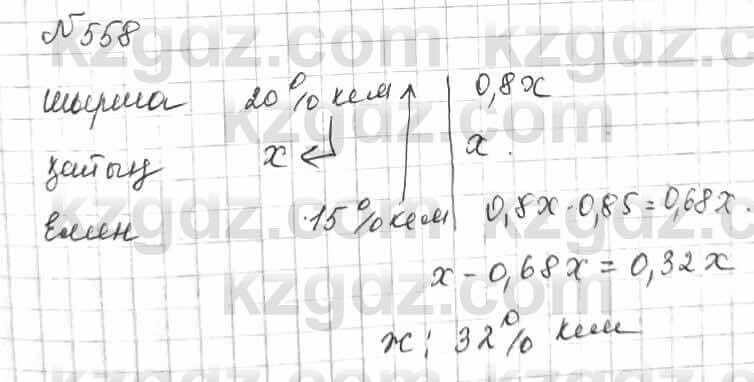 №558
шырша 20% кем 0,8x
қайың x x.
Емен 15% кем 0,8x·0,85=0,68x.
x-0,68x=0,32x
ж: 32% кем
kzgdz.com kzgdz.com
kzgdz.com kzgdz.com
kzgdz.com kzgdz.com